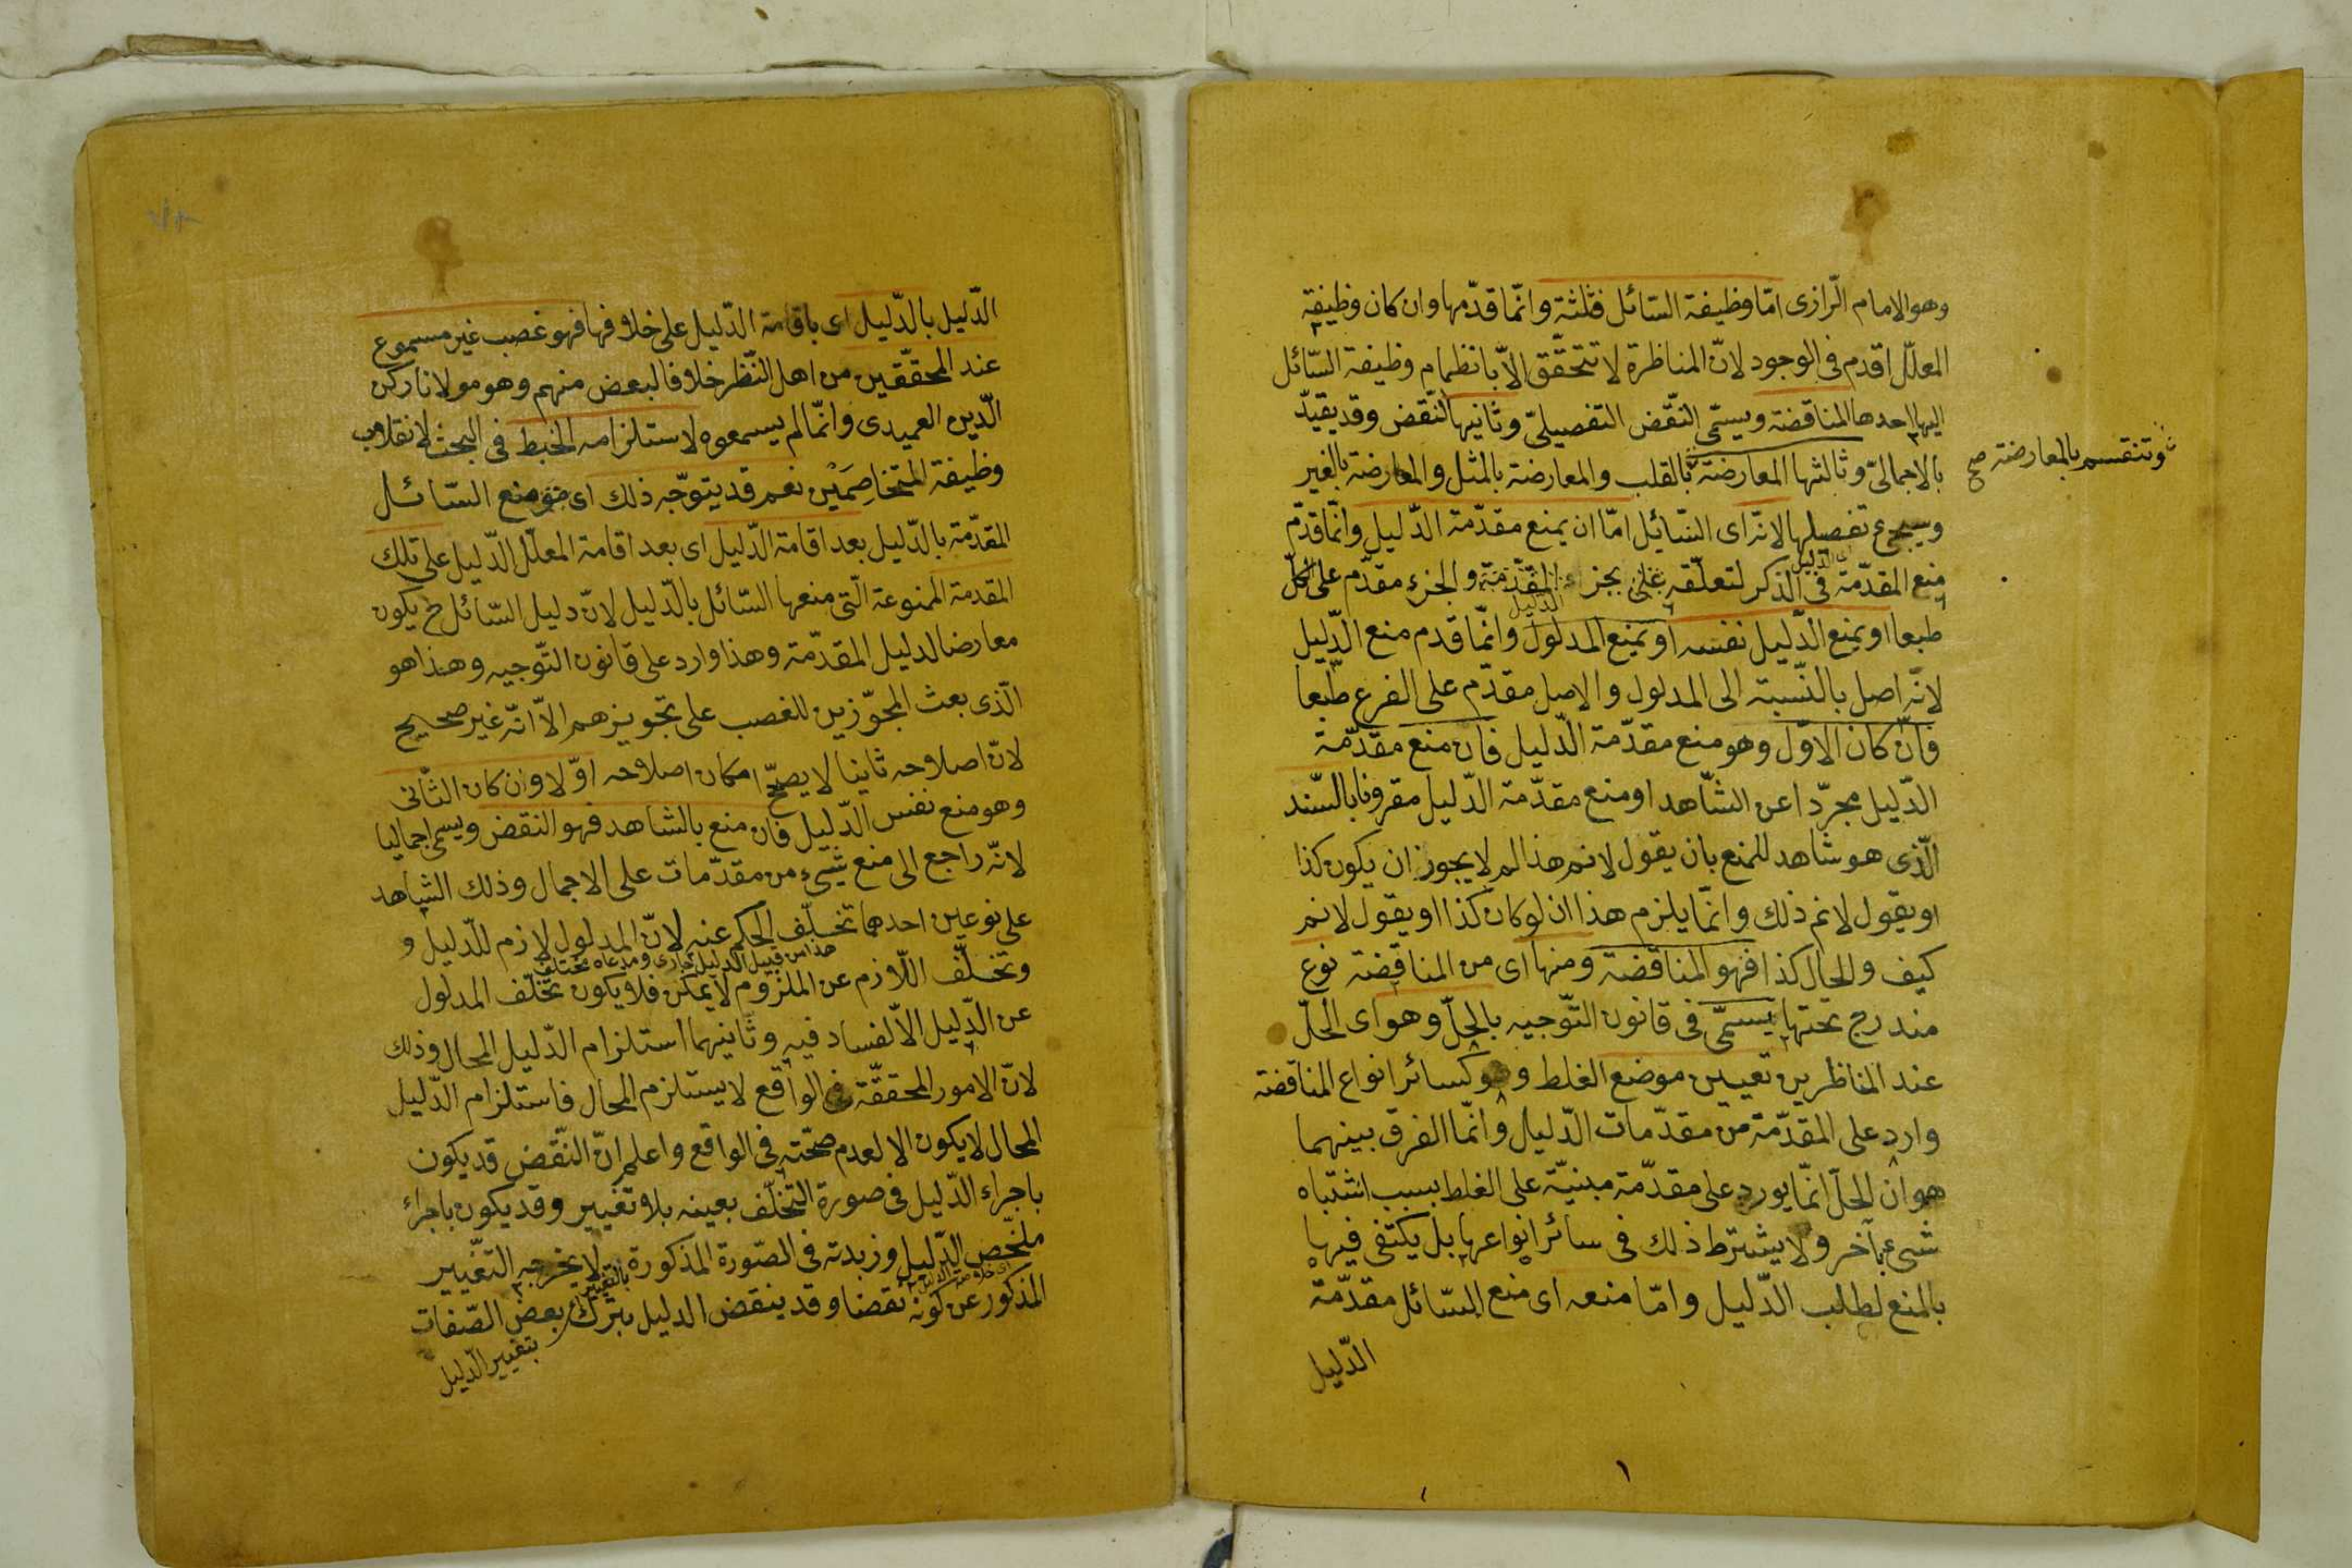 وهو الامام الرازى امّا وظيفة السّائل فثلثة وانّما قدّمها وان كان وظيفة
المعلّل اقدم فى الوجود لانّ المناظرة لا تتحقّق الاّ بانظمام وظيفة السّائل
اليها احدها المناقضة ويسمّى النّقض التفصيلىّ وثانيها النّقض وقد يقيّد
بالاجمالىّ وثالثها المعارضة بالقلب والمعارضة بالمثل والمعارضة بالغير
وتنقسم بالمعارضة صح
ويجىء تفصيلها لانّه اى السّائل امّا ان يمنع مقدّمة الدّليل وانّما قدّم
منع المقدّمة فى الذكر لتعلّقه بجزء الدليل المقدّمة والجزء مقدّم على الكلّ
طبعا او يمنع الدّليل نفسه او يمنع المدلول وانّما قدم منع الدّليل
لانّه اصل بالنّسبة الى المدلول والاصل مقدّم على الفرع طبعا
فان كان الاوّل وهو منع مقدّمة الدّليل فان منع مقدّمة
الدّليل مجرّدا عن الشّاهد او منع مقدّمة الدّليل مقرونا بالسّند
الّذى هو شاهد للمنع بان يقول لانم هذا لم لا يجوز ان يكون كذا
او يقول لانم ذلك وانّما يلزم هذا ان لو كان كذا او يقول لانم
كيف والحال كذا فهو المناقضة ومنها اى من المناقضة نوع
مندرج تحتها يسمّى فى قانون التّوجيه بالحلّ وهو اى الحلّ
عند المناظرين تعيين موضع الغلط وهو كسائر انواع المناقضة
وارد على المقدّمة من مقدّمات الدّليل وانّما الفرق بينهما
هو ان الحلّ انّما يورد على مقدّمة مبنيّة على الغلط بسبب اشتباه
شىء بآخر ولا يشترط ذلك فى سائر انواعها بل يكتفى فيها
بالمنع لطلب الدّليل وامّا منعه اى منع السّائل مقدّمة
الدّليل
الدّليل بالدّليل اى باقامة الدّليل على خلافها فهو غصب غير مسموع
عند المحقّقين من اهل النّظر خلافا لبعض منهم وهو مولانا ركن
الدّين العميدى وانّما لم يسمعوه لاستلزامه الخبط فى البحث لانقلاب
وظيفة المتخاصمين نعم قد يتوجّه ذلك اى منع السّائل
المقدّمة بالدّليل بعد اقامة الدّليل اى بعد اقامة المعلّل الدّليل على تلك
المقدمة الممنوعة الّتى منعها السّائل بالدّليل لانّ دليل السّائل ح يكون
معارضا لدليل المقدّمة وهذا وارد على قانون التّوجيه وهذا هو
الّذى بعث المجوّزين للغصب على تجويزهم الاّ انّه غير صحيح
لانّ اصلاحه ثانيا لا يصحّح امكان اصلاحه اوّلا وان كان الثّانى
وهو منع نفس الدّليل فان منع بالشاهد فهو النقض ويسمى اجماليا
لانّه راجع الى منع شىء من مقدّمات على الاجمال وذلك الشاهد
على نوعين احدهما تخلّف الحكم عنه لانّ المدلول لازم للدّليل و
هذا من قبيل الدليل جارى ومدعاه مختلف
وتخلّف اللاّزم عن الملزوم لا يمكن فلا يكون تخلّف المدلول
عن الدّليل الاّ لفساد فيه وثانيهما استلزام الدّليل المحال وذلك
لانّ الامور المحققّة فى الواقع لا يستلزم المحال فاستلزام الدّليل
المحال لا يكون الا لعدم صحّته فى الواقع واعلم انّ النّقض قد يكون
باجراء الدّليل فى صورة التخلّف بعينه بلا تغيير وقد يكون باجراء
ملخّص الدّليل وزبدته فى الصّورة المذكورة لا يخرجه التغيير
اى خلاصة الدليل
بالتغيير
المذكور عن كونه نقضا وقد ينقض الدليل بترك بعض الصّفات
بتغيير الدّليل